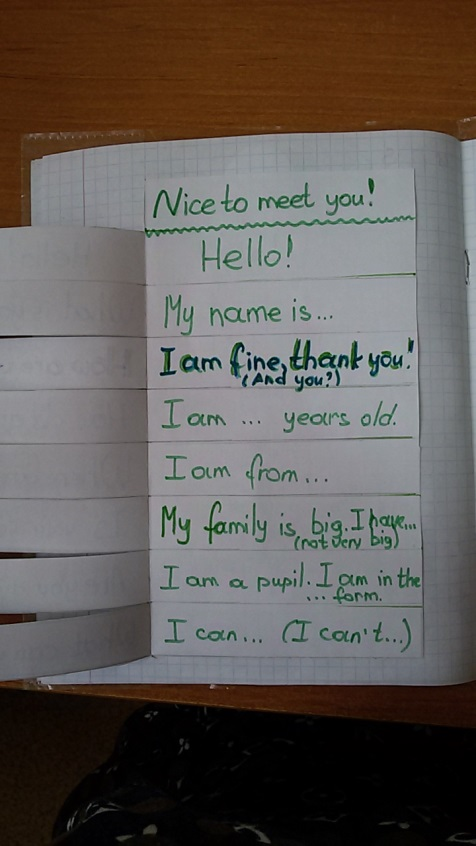 Nice to meet you!
Hello!
My name is...
I am fine, thank you!
(And you?)
I am ... years old.
I am from...
My family is big. I have...
(not very big)
I am a pupil. I am in the
... form.
I can... (I can't...)